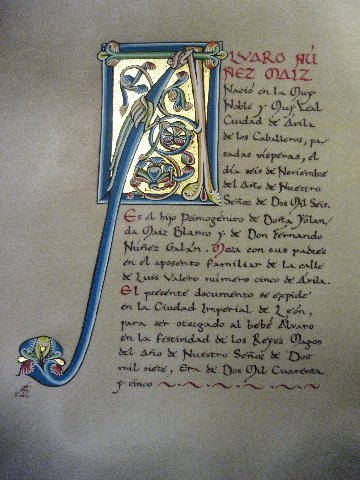 ALVARO NÚ
ÑEZ MAIZ.
Nació en la Muy
Noble y Muy Leal
Ciudad de Ávila
de los Caballeros, pa-
sadas vísperas, el
día seis de Noviembre
del Año de Nuestro
Señor de Dos Mil Seis.
Es el hijo Primogénito de Doña Yolan-
da Maiz Blanco y de Don Fernando
Núñez Galán. Mora con sus padres
en el aposento familiar de la calle
de Luis Valero número cinco de Ávila.
El presente documento se expide
en la Ciudad Imperial de León,
para ser otorgado al bebé Álvaro
en la festividad de los Reyes Magos
del Año de Nuestro Señor de Dos
mil siete, Era de Dos Mil Cuarenta
y cinco